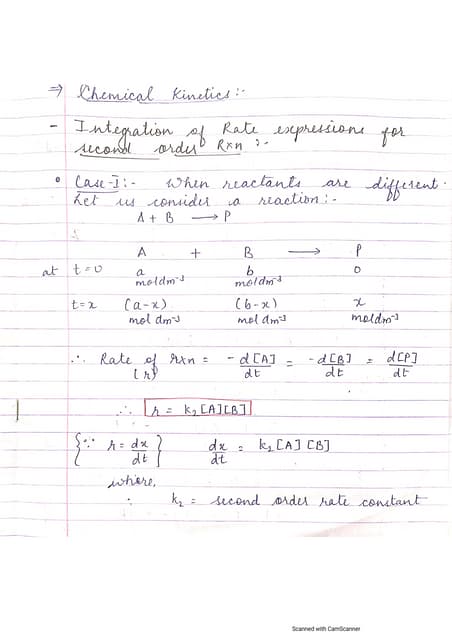 ⇒ Chemical Kinetics:-
- Integration of Rate expressions for
second order Rxn :-
• Case-I:- When reactants are different.
Let us consider a reaction:-
A + B ⟶ P
A + B ⟶ P
at t=0 a b 0
moldm⁻³ moldm⁻³
t=x (a-x) (b-x) x
mol dm⁻³ mol dm⁻³ moldm⁻³
∴ Rate of rxn = -d[A]/dt = -d[B]/dt = d[P]/dt
(r)
∴ r = k₂[A][B]
{∵ r = dx/dt} dx/dt = k₂[A][B]
where,
∴ k₂ = second order rate constant
Scanned with CamScanner